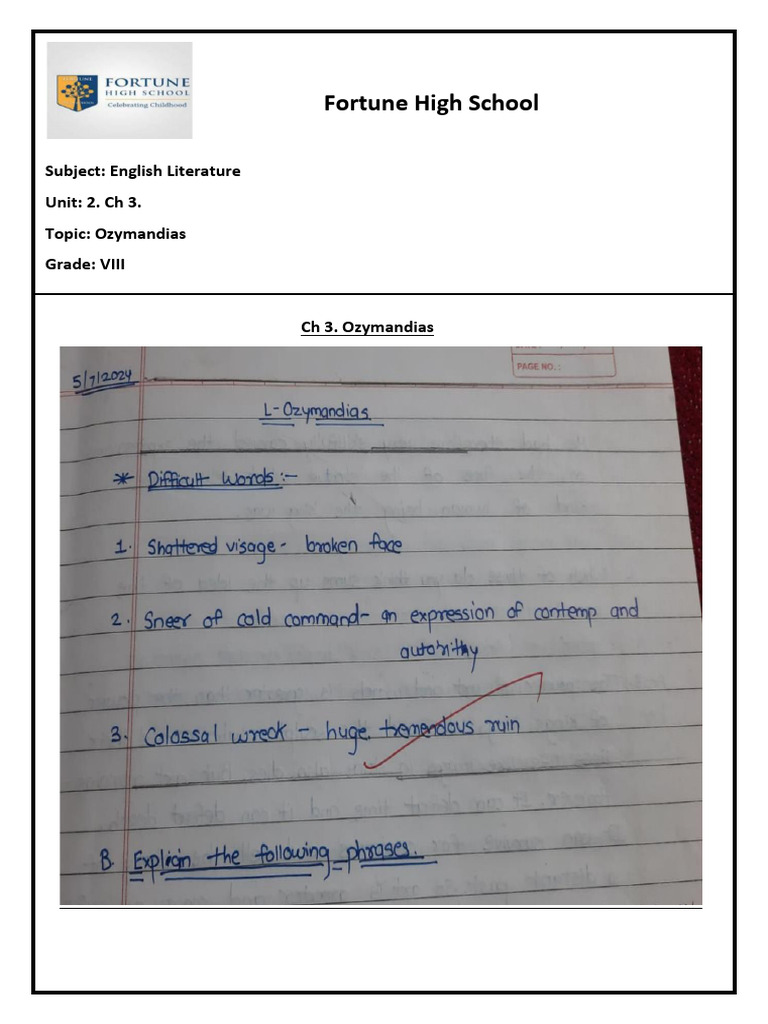 FORTUNE
HIGH SCHOOL
Celebrating Childhood
Fortune High School
Subject: English Literature
Unit: 2. Ch 3.
Topic: Ozymandias
Grade: VIII
Ch 3. Ozymandias
PAGE NO.:
5/7/2024
L-Ozymandias
* Difficult Words:-
1. Shattered visage - broken face
2. Sneer of cold command- an expression of contemp and
autorithy
3. Colossal wreck - huge, tremendous ruin
B. Expliain the following phrases.